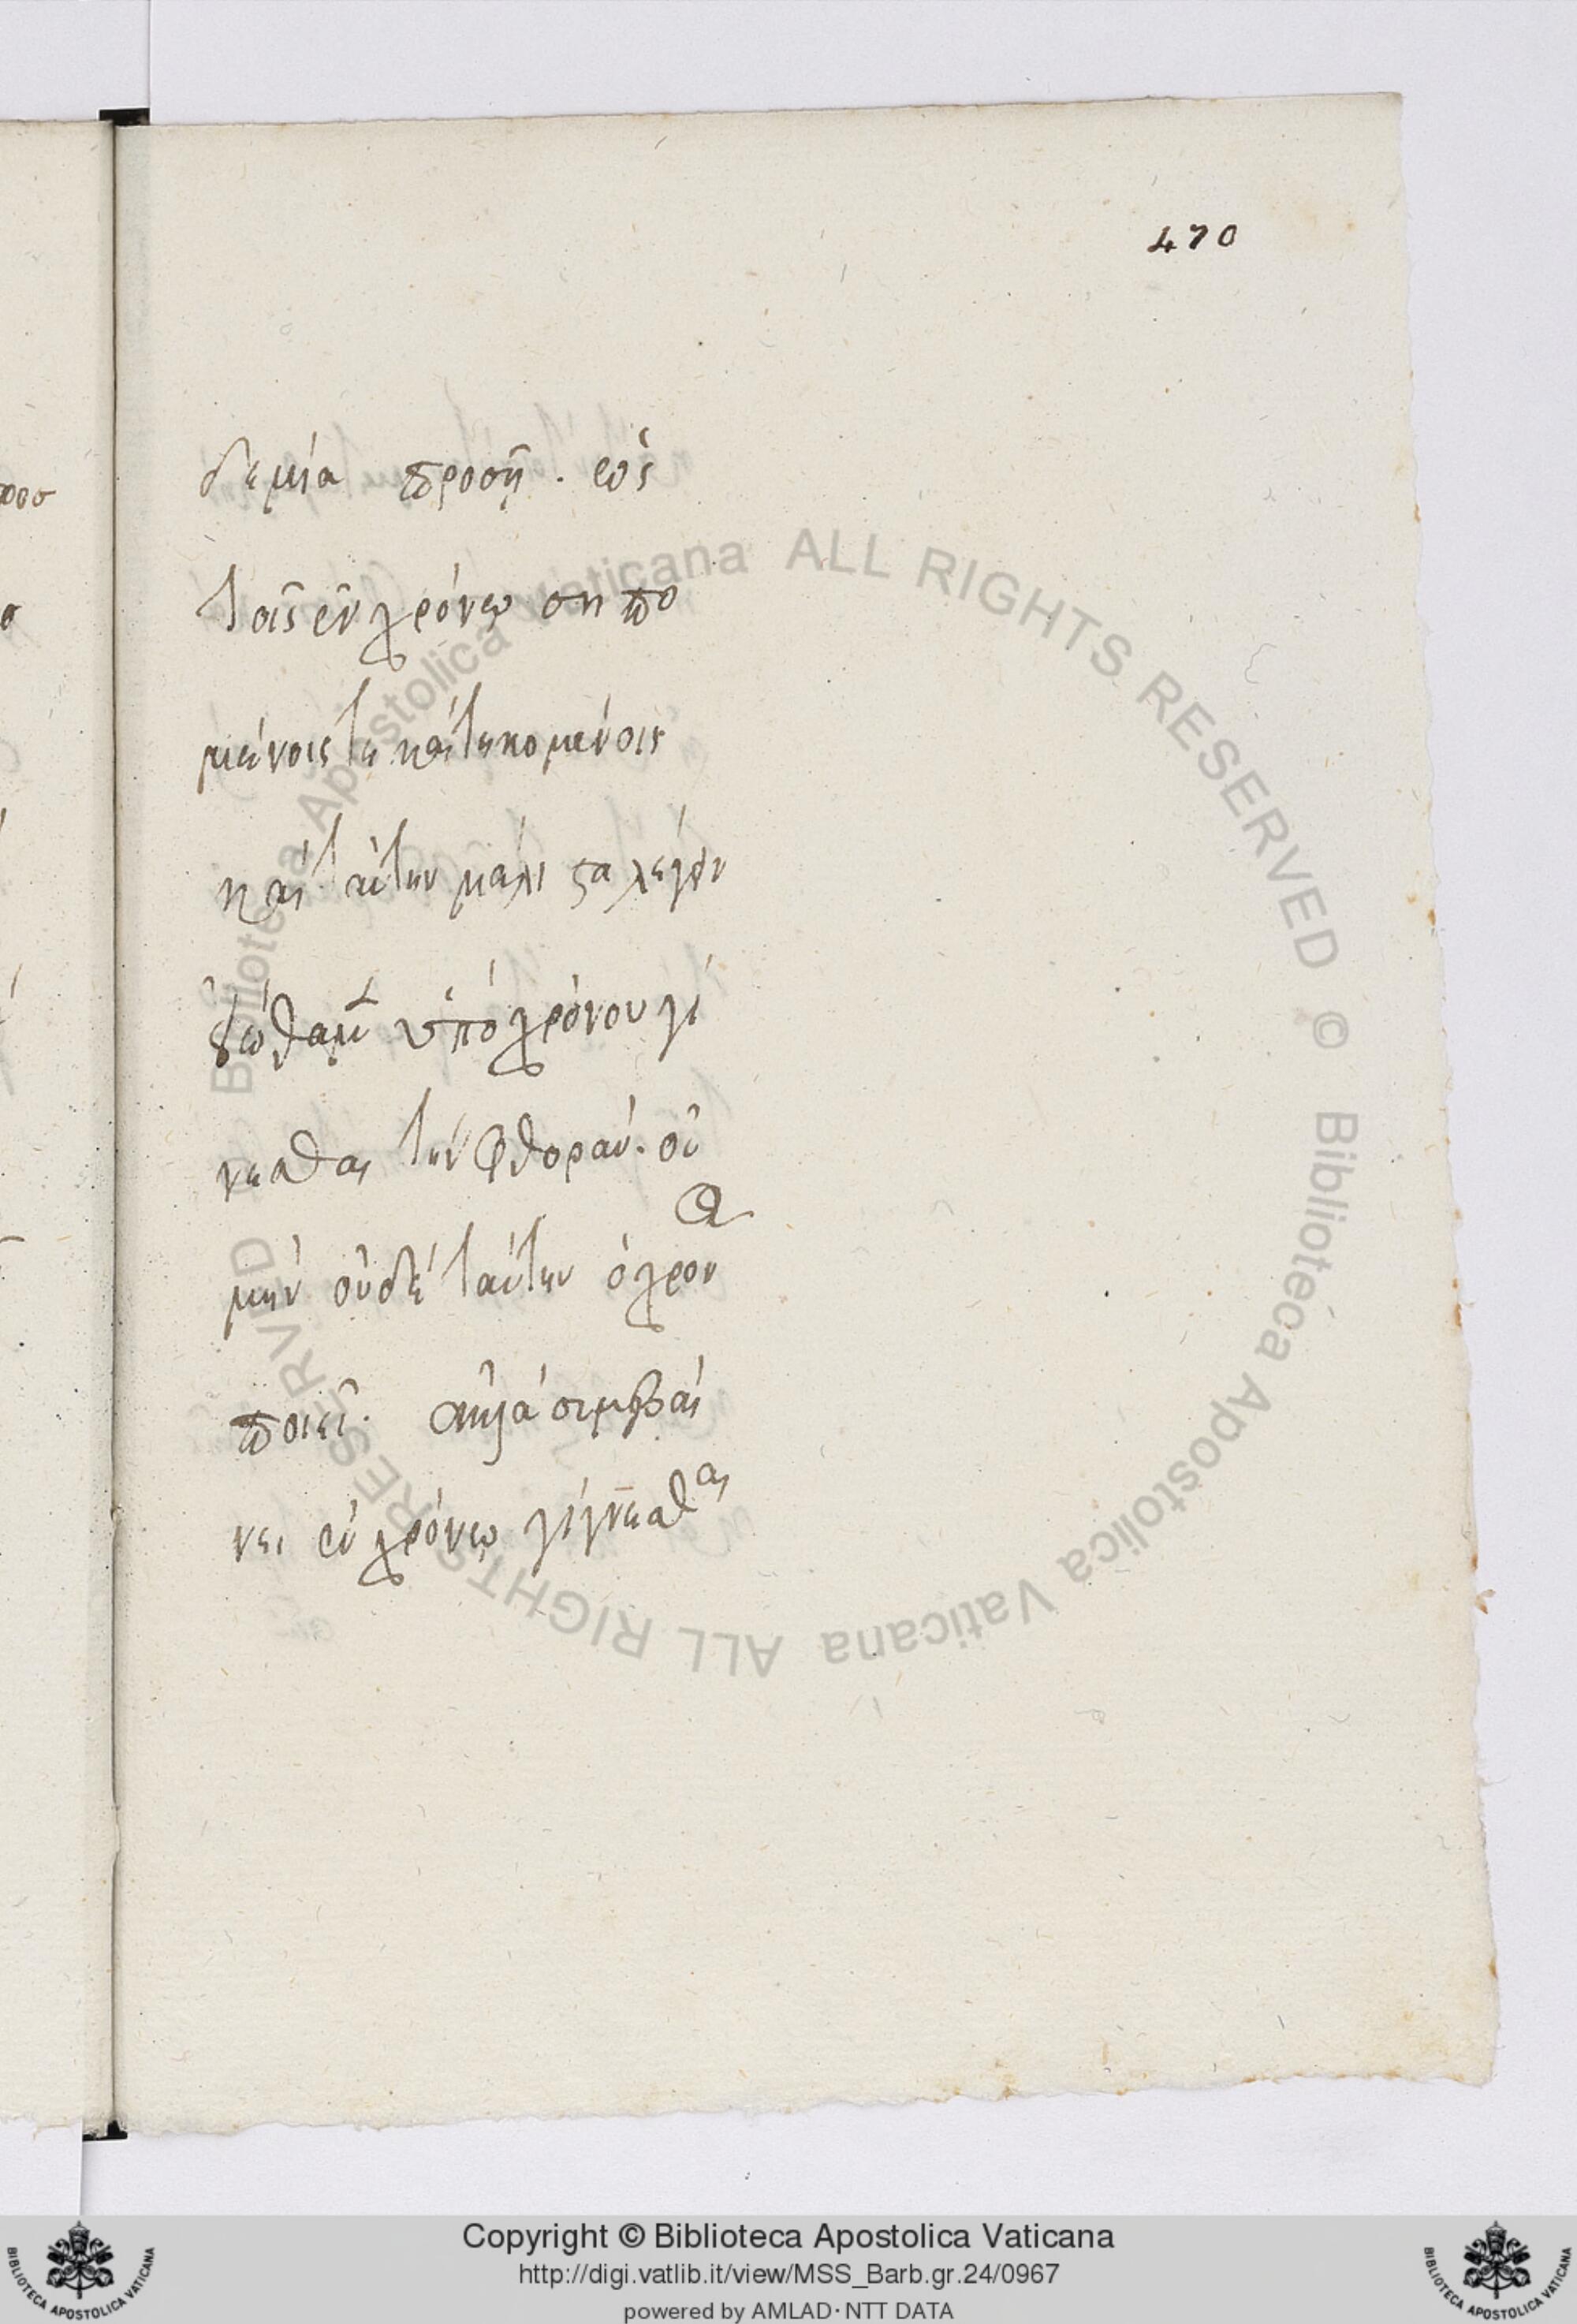 470
δεμία προσῇ. ὡς
τοῖς ἐν χρόνῳ σηπο
μένοις τε καὶ τηκομένοις
καὶ ταύτην μάλιστα λέγειν
εἰώθαμεν ὑπὸ χρόνου γί
νεσθαι τὴν φθοράν. οὐ
μὴν οὐδὲ ταύτην ὁ χρον
ποιεῖ. ἀλλὰ συμβαί
νει ἐν χρόνῳ γίγνεσθαι
Biblioteca Apostolica Vaticana ALL RIGHTS RESERVED © Biblioteca Apostolica Vaticana ALL RIGHTS RESERVED
Copyright © Biblioteca Apostolica Vaticana
http://digi.vatlib.it/view/MSS_Barb.gr.24/0967
powered by AMLAD·NTT DATA
BIBLIOTECA APOSTOLICA VATICANA
BIBLIOTECA APOSTOLICA VATICANA